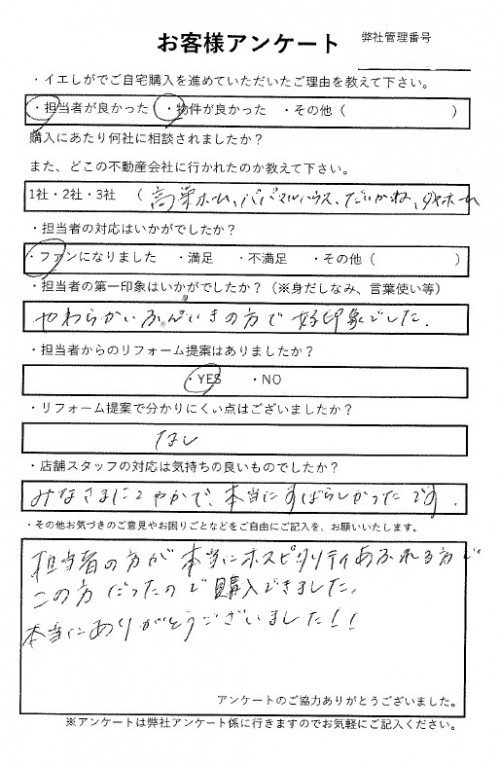 お客様アンケート
弊社管理番号
・イエしがでご自宅購入を進めていただいたご理由を教えて下さい。
・担当者が良かった ・物件が良かった ・その他（ ）
購入にあたり何社に相談されましたか？
また、どこの不動産会社に行かれたのか教えて下さい。
1社・2社・3社 （高栄ホーム、パパマルハウス、だいかね、ダイホーム
・担当者の対応はいかがでしたか？
・ファンになりました ・満足 ・不満足 ・その他（ ）
・担当者の第一印象はいかがでしたか？（※身だしなみ、言葉使い等）
やわらかいふんいきの方で好印象でした.
・担当者からのリフォーム提案はありましたか？
・YES ・NO
・リフォーム提案で分かりにくい点はございましたか？
なし
・店舗スタッフの対応は気持ちの良いものでしたか？
みなさまにこやかで、本当にすばらしかったです.
・その他お気づきのご意見やお困りごとなどをご自由にご記入を、お願いいたします。
担当者の方が本当にホスピタリティあふれる方で
この方だったので購入できました.
本当にありがとうございました!!
アンケートのご協力ありがとうございました。
※アンケートは弊社アンケート係に行きますのでお気軽にご記入ください。